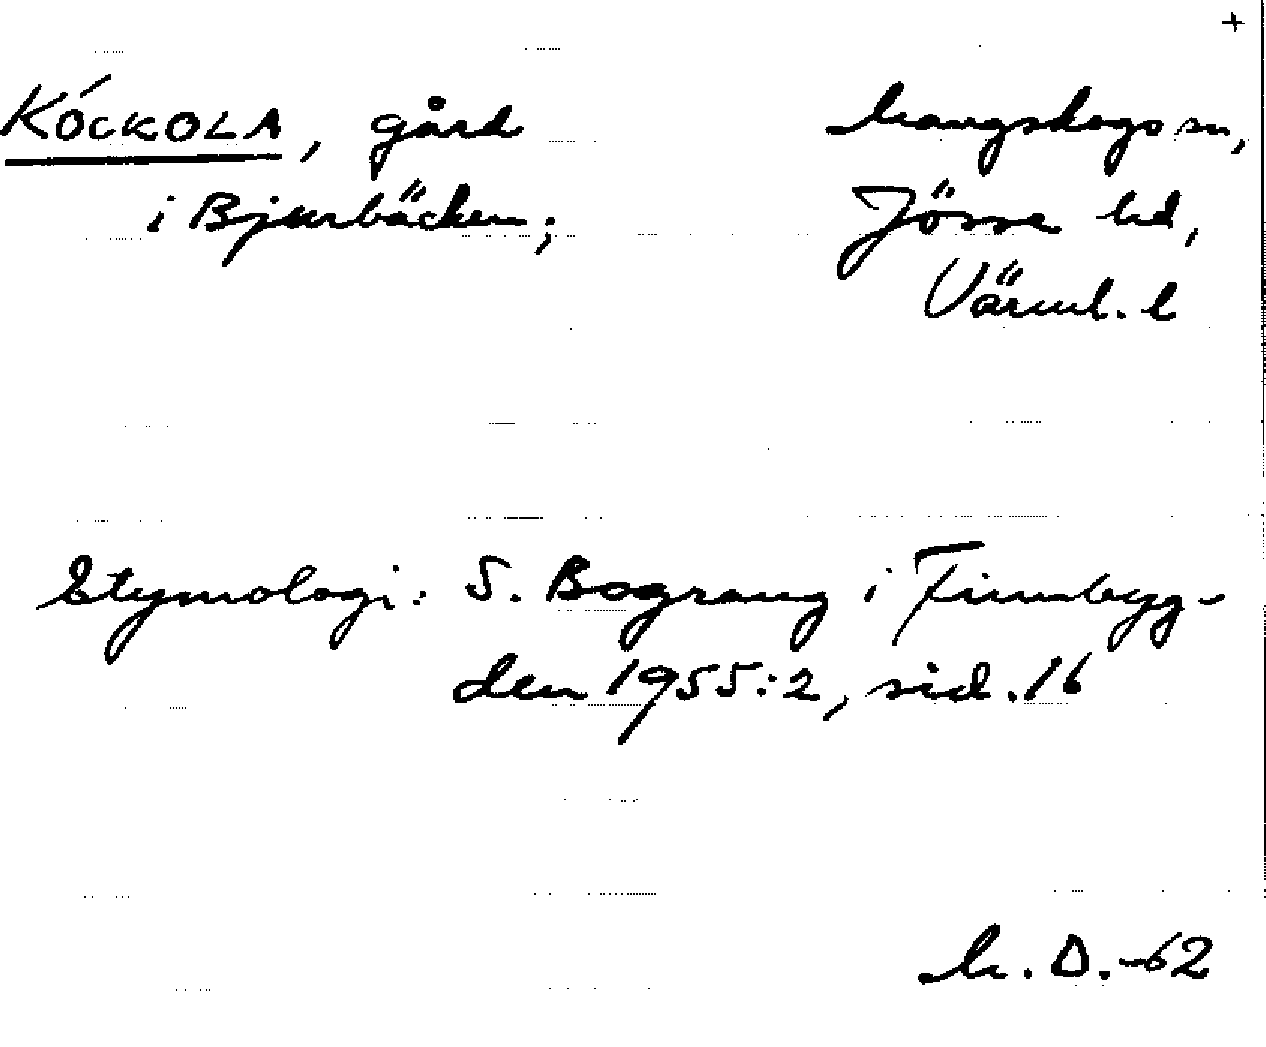 +
KÓCKOLA, gård Mangskogs sn,
i Bjurbäcken; Jösse hd,
Värml. l
Etymologi: S. Bograng i Finnbyg-
den 1955:2, sid. 16
M. D. -62